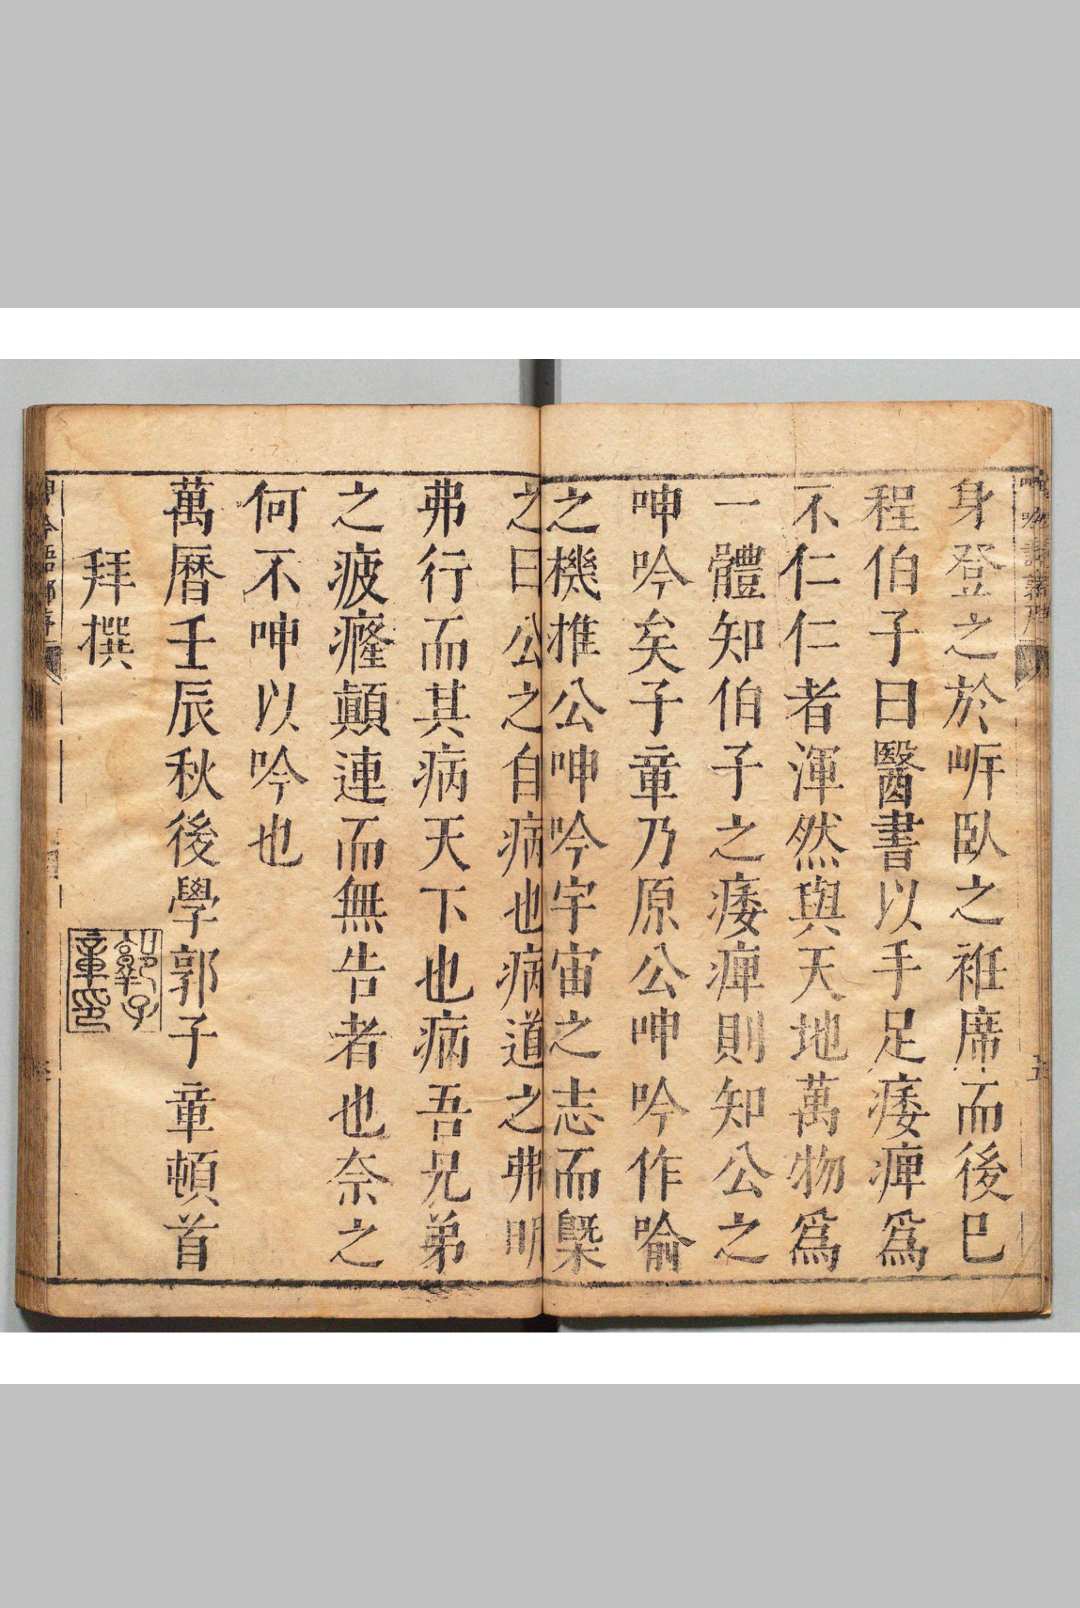 身登之於岍臥之袵席而後已
程伯子曰醫書以手足痿痺爲
不仁仁者渾然與天地萬物爲
一體知伯子之痿痺則知公之
呻吟矣子章乃原公呻吟作喻
之機推公呻吟宇宙之志而槩
之曰公之自病也病道之弗明
弗行而其病天下也病吾兄弟
之疲癃顛連而無告者也奈之
何不呻以吟也
萬曆壬辰秋後學郭子章頓首
拜撰
郭子章印
呻吟語鄒序